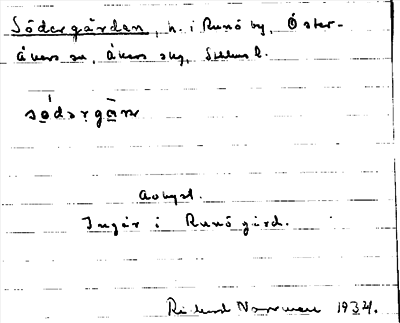 Södergården, h. i Runö by, Öster-
åkers sn, Åkers skg, Sthlms l.
södərgårn
Avbyst.
Ingår i Runö gård.
Rikard Norrman 1934.